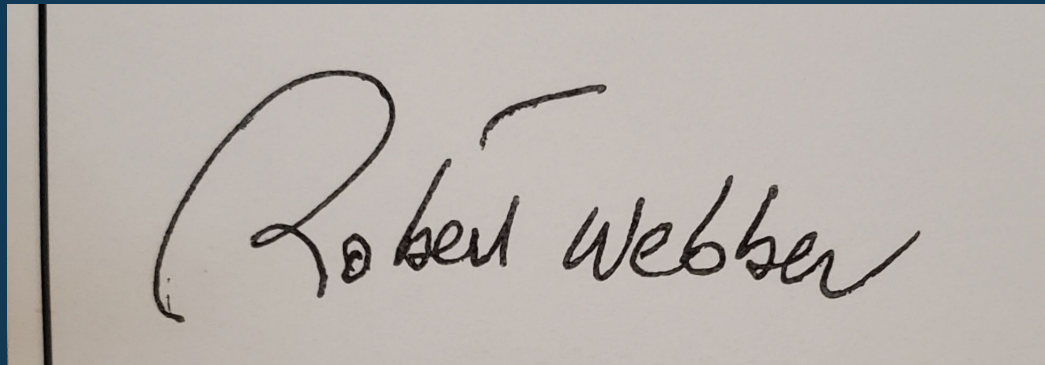 Robert Webber